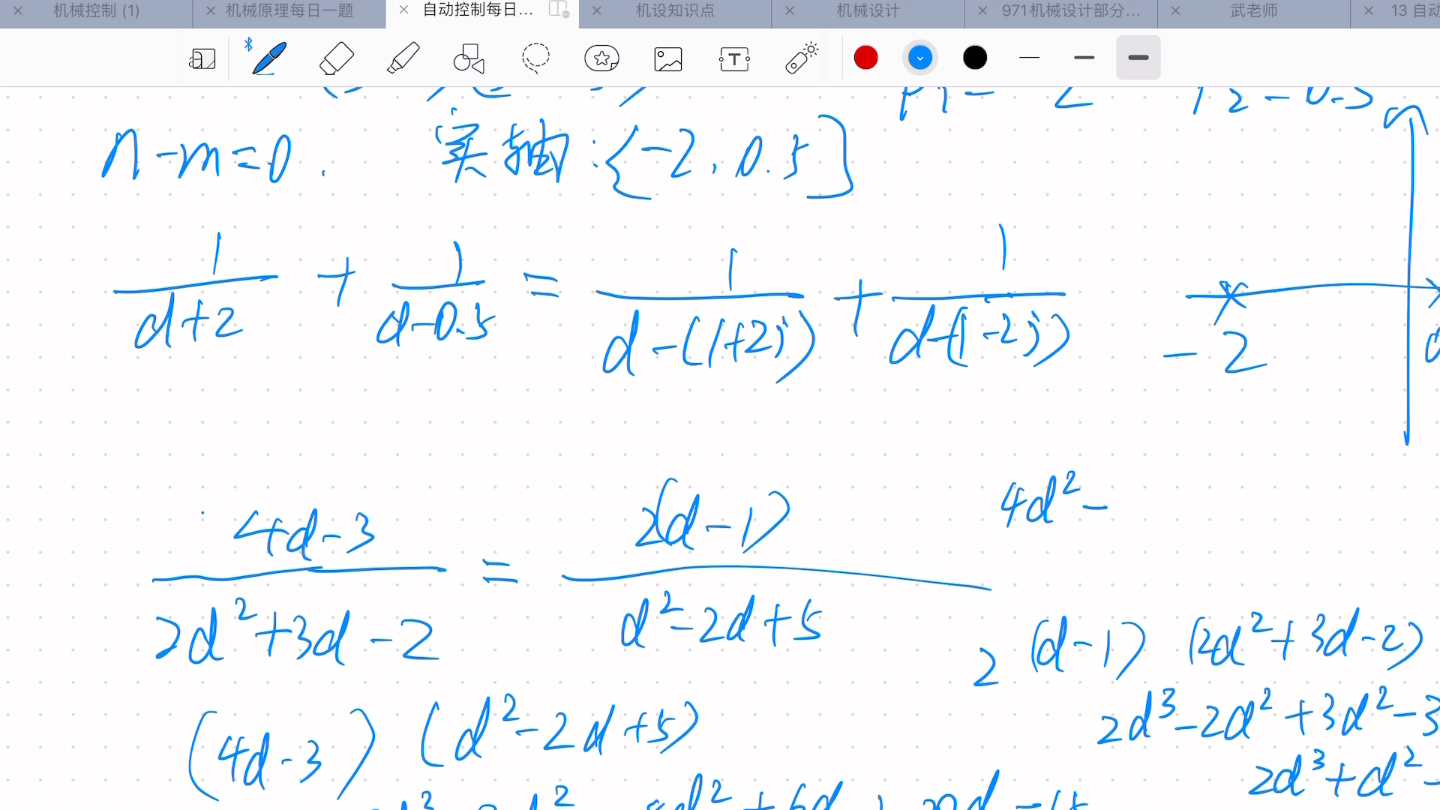 机械控制 (1) 机械原理每日一题 自动控制每日... 机设知识点 机械设计 971机械设计部分... 武老师 13 自动
n-m=0. 实轴:{-2, 0.5]
1/(d+2) + 1/(d-0.5) = 1/(d-(1+2j)) + 1/(d-(1-2j))
-2
4d²-
(4d-3)/(2d²+3d-2) = 2(d-1)/(d²-2d+5)
2 (d-1) (2d²+3d-2)
(4d-3) (d²-2d+5)
2d³-2d²+3d²-3
2d³+d²-